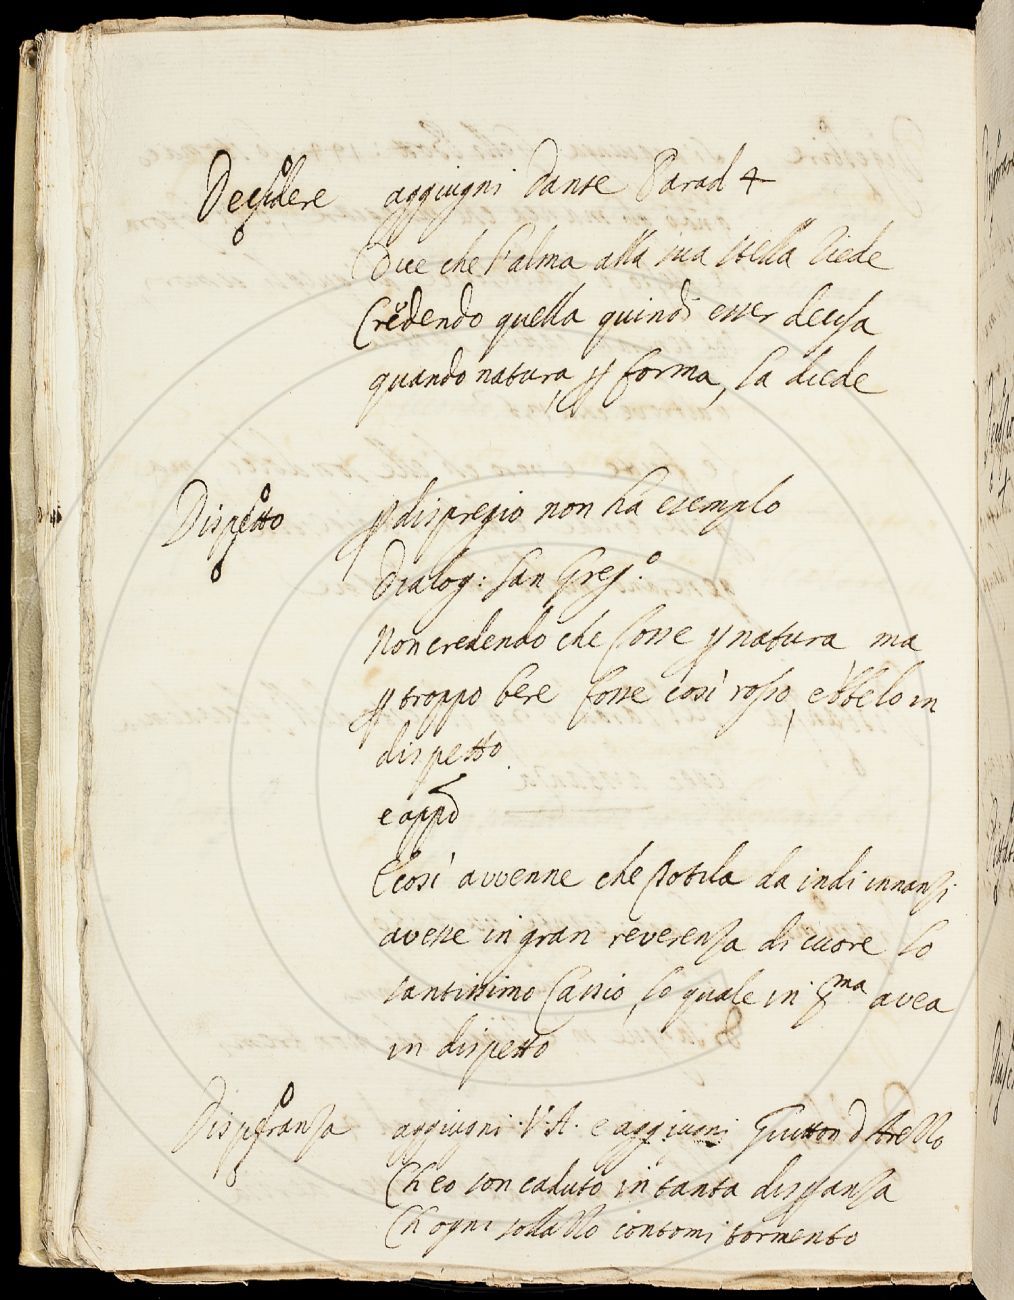 Decidere aggiugni Dante Parad 4
Dice che l'alma alla sua stella riede
Credendo quella quindi esser decisa
quando natura p forma la diede
Dispetto p dispregio non ha esempio
Dialog: San Greg.o
Non credendo che fosse p natura ma
p troppo bere fosse così rosso, ebbelo in
dispetto
e appo
E così avvenne che Totila da indi innanzi
avesse in gran reverenza di cuore lo
santissimo Cassio, lo quale in pma avea
in dispetto
Disperanza aggiugni V. A. e aggiugni Guitton d'Arezzo
Ch eo son caduto in tanta dispanza
Ch ogni sollazzo contomi tormento